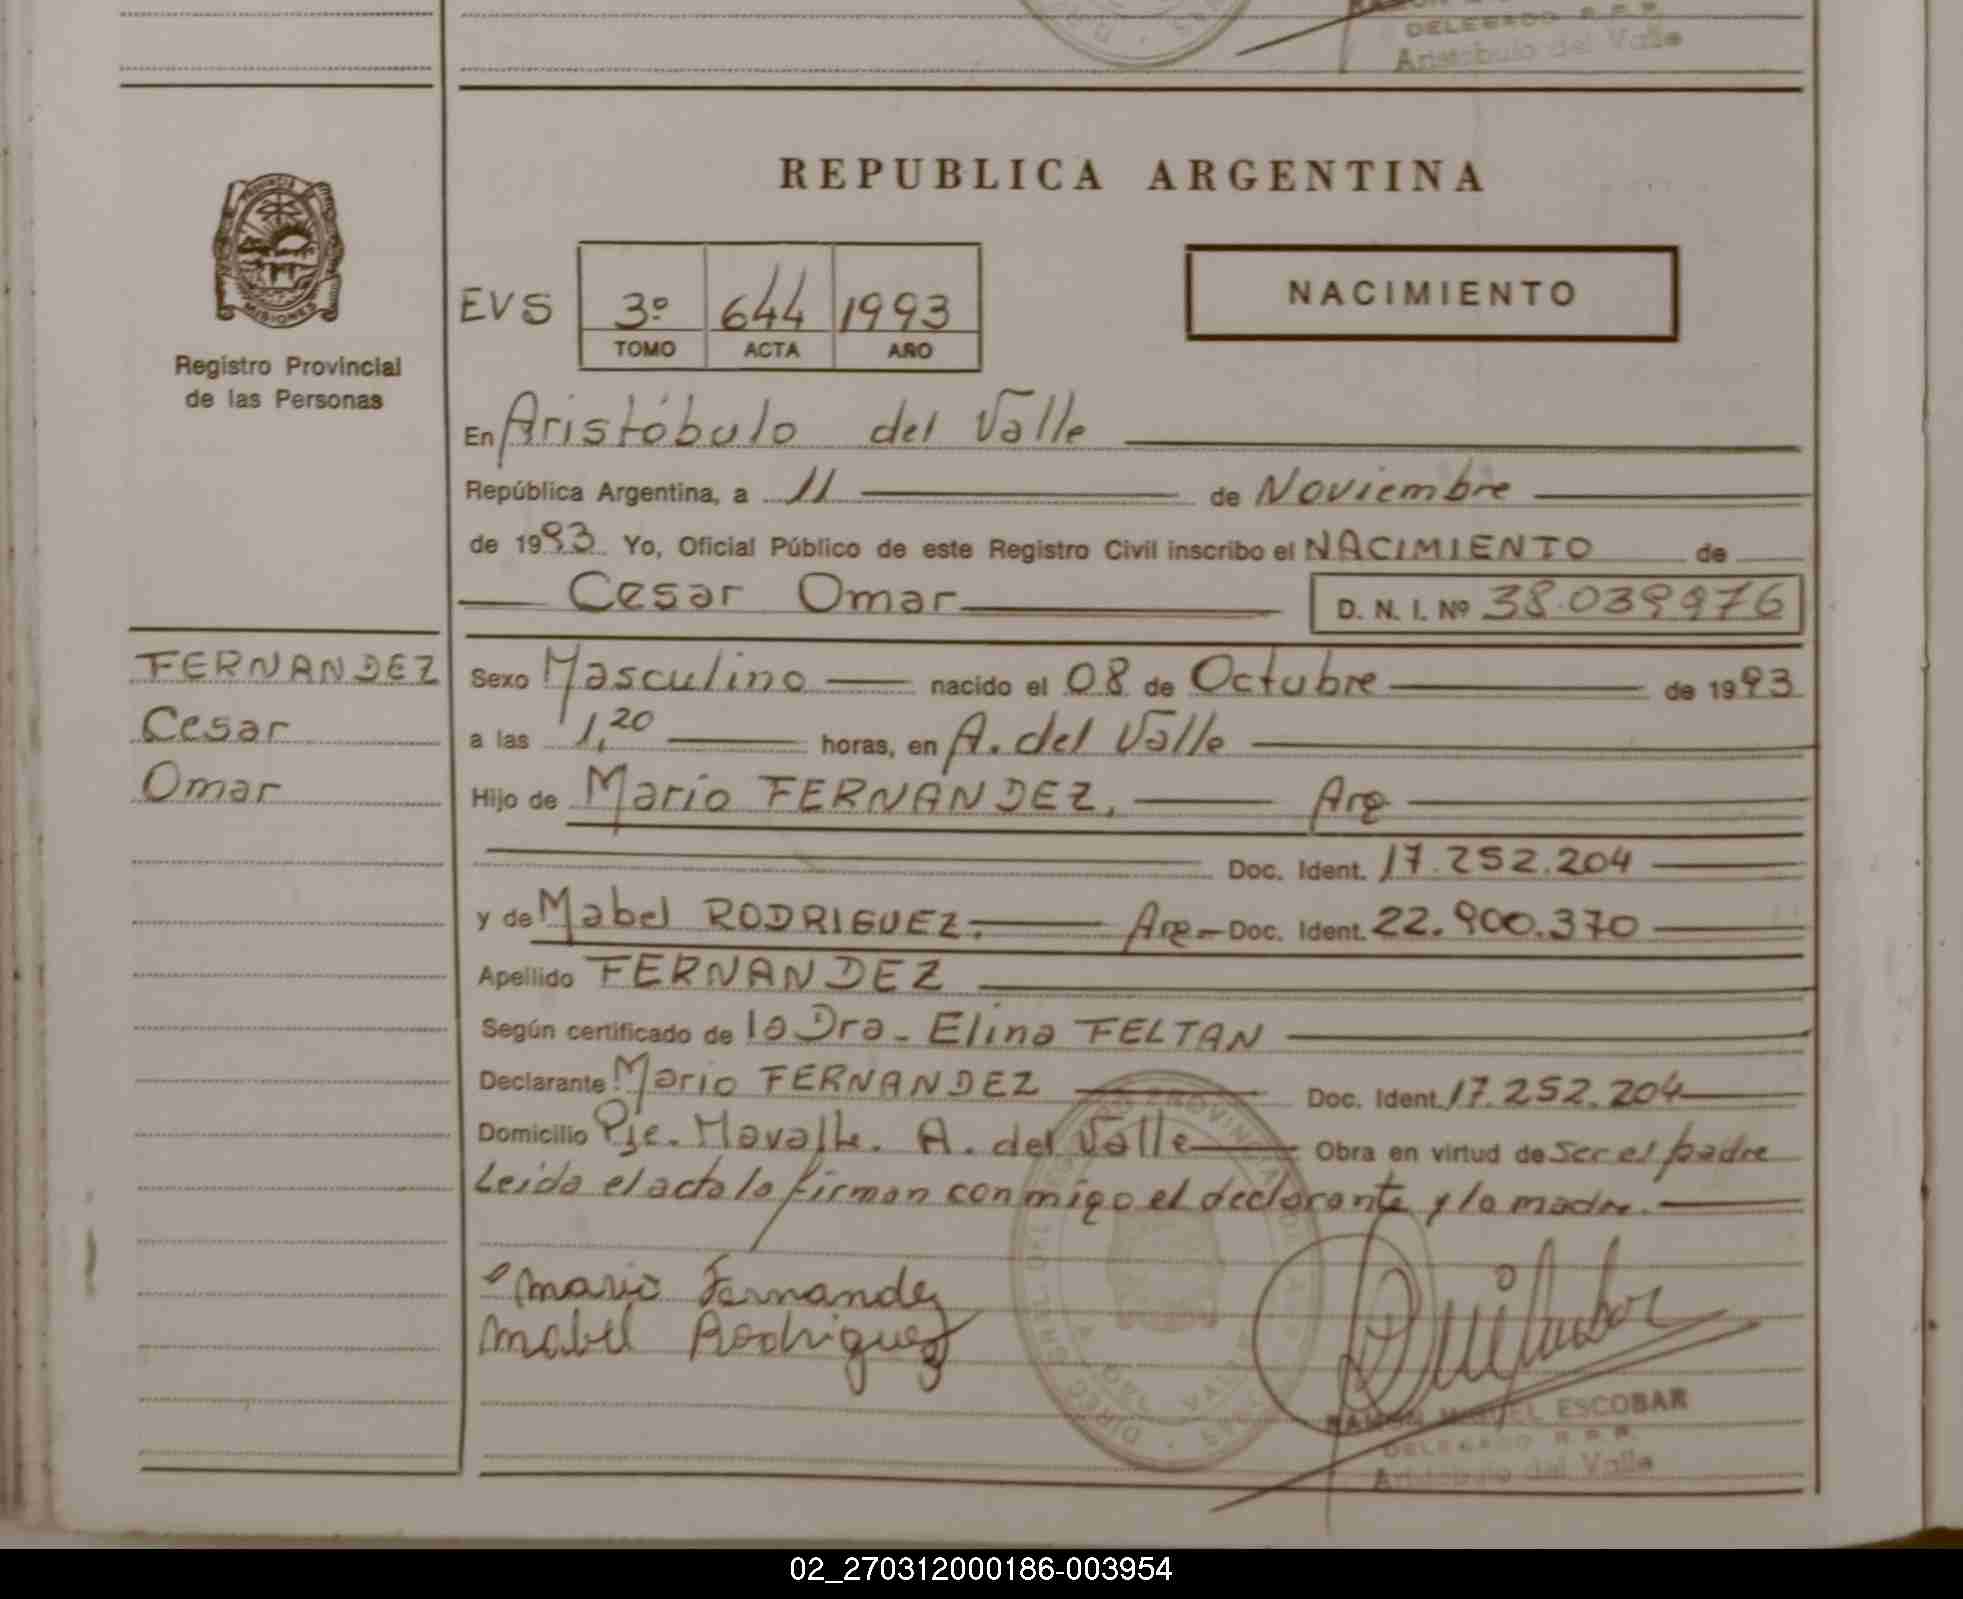 DELEGADO R.P.P.
Aristobulo del Valle
REPUBLICA ARGENTINA
PROVINCIA
MISIONES
Registro Provincial
de las Personas
EVS 3º 644 1993
TOMO ACTA AÑO
NACIMIENTO
En Aristóbulo del Valle
República Argentina, a 11 de Noviembre
de 1993 Yo, Oficial Público de este Registro Civil inscribo el NACIMIENTO de
Cesar Omar D. N. I. Nº 38.039976
FERNANDEZ
Cesar
Omar
Sexo Masculino nacido el 08 de Octubre de 1993
a las 1,20 horas, en A. del Valle
Hijo de Mario FERNANDEZ, Arg
Doc. Ident. 17.252.204
y de Mabel RODRIGUEZ. Arg- Doc. Ident. 22.900.370
Apellido FERNANDEZ
Según certificado de la Dra. Elina FELTAN
Declarante Mario FERNANDEZ Doc. Ident. 17.252.204
Domicilio Pje. A. del Valle Obra en virtud de ser el padre
Leida el acta la firman conmigo el declarante y la madre.
Mario Fernandez
Mabel Rodriguez
RAMON MIGUEL ESCOBAR
DELEGADO R.P.P.
Aristobulo del Valle
02_270312000186-003954